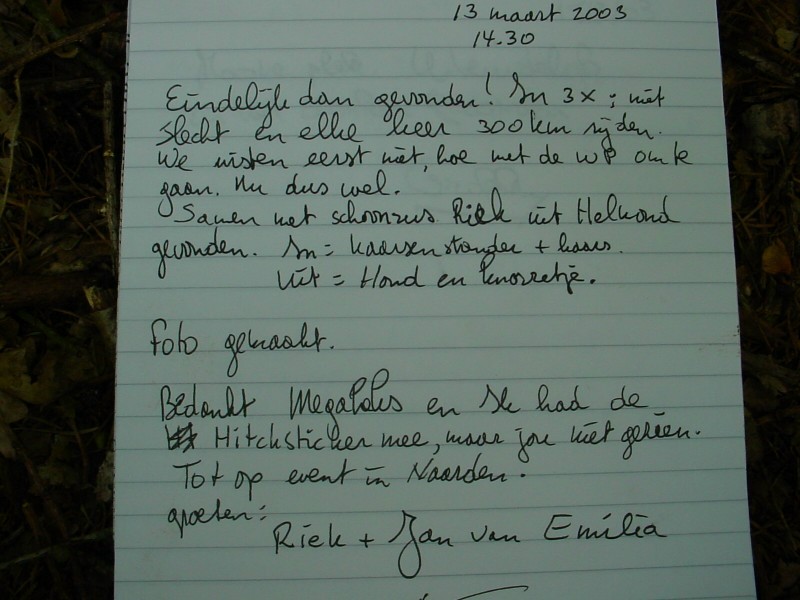 13 maart 2003
14.30
Eindelijk dan gevonden! In 3x; niet
slecht en elke keer 300 km rijden.
We wisten eerst niet, hoe met de WP om te
gaan. Nu dus wel.
Samen met schoonzus Riek uit Helmond
gevonden. In = kaarsenstander + kaars.
Uit = Hond en knorretje.
Foto gemaakt.
Bedankt en Ik had de
Hitchsticker mee, maar jou niet gezien.
Tot op event in Naarden.
groeten:
Riek + Jan van Emilia